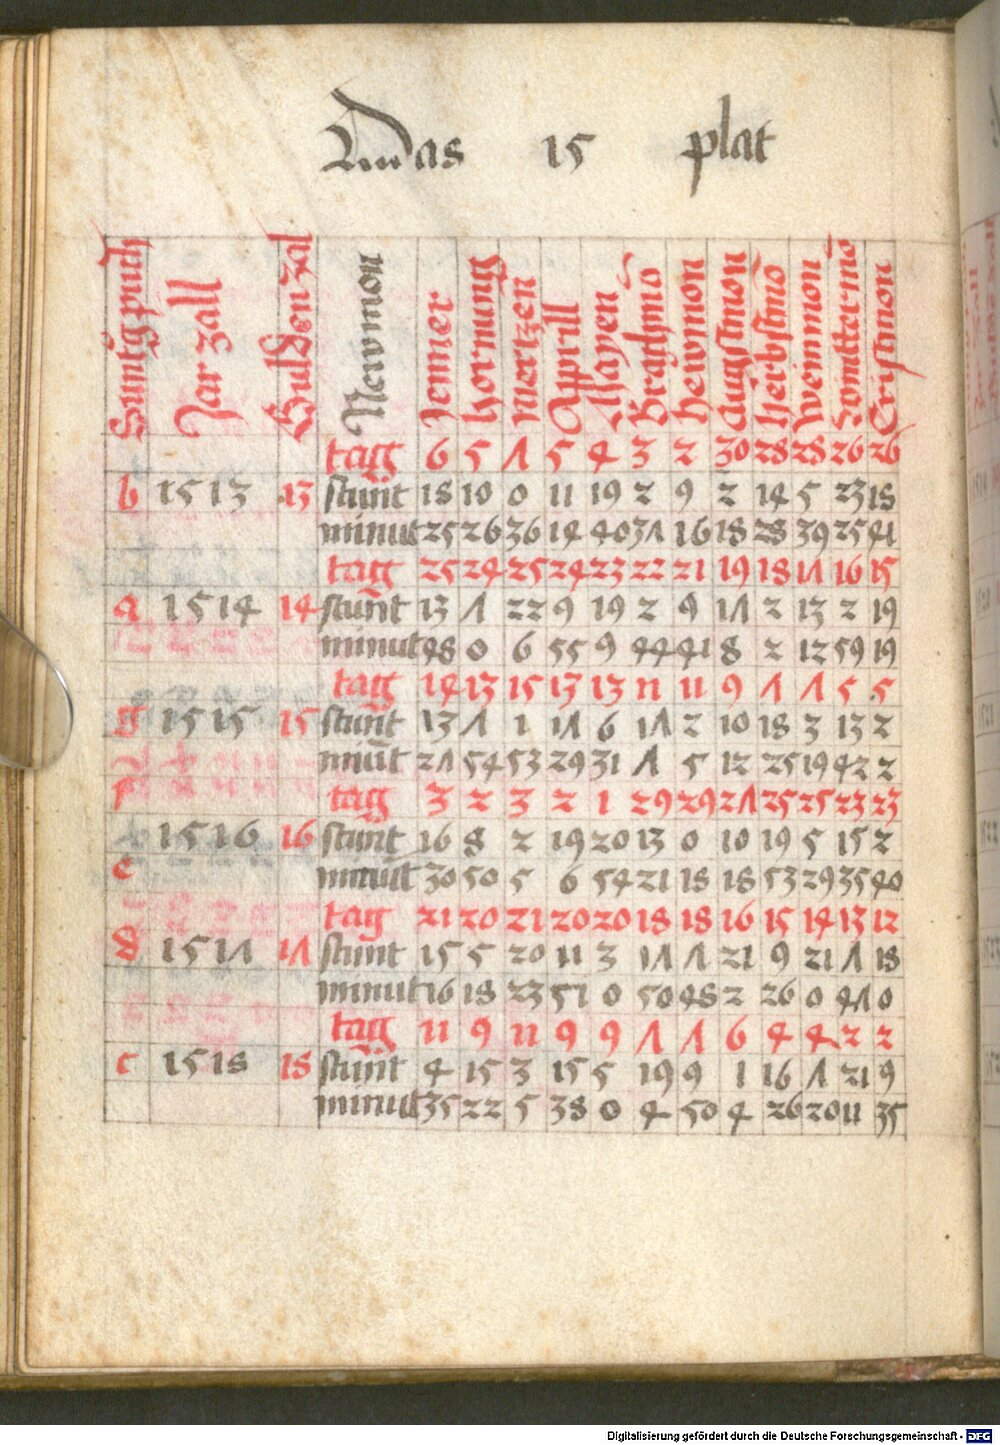 Das 15 plat
Suntag puch Jar zall Gulden zal Newmon Jenner Hornung Mertzen Apprill Mayen Brachmō Hewmon Augstmon Herbstmō Weinmon Wintermō Cristmon
tag 6 5 7 5 4 3 2 30 28 28 26 26
b 1513 13 stunt 18 10 0 11 19 2 9 2 14 5 23 18
minut 25 26 36 14 40 37 16 18 28 39 25 41
tag 25 24 25 24 23 22 21 19 18 17 16 15
a 1514 14 stunt 13 7 22 9 19 2 9 17 2 13 2 19
minut 48 0 6 55 9 44 41 8 2 12 59 19
tag 14 13 15 13 13 11 11 9 7 7 5 5
g 1515 15 stunt 13 7 1 17 6 17 2 10 18 3 13 2
minut 27 54 53 29 31 7 5 12 25 19 42 2
f tag 3 2 3 2 1 29 29 27 25 25 23 23
1516 16 stunt 16 8 2 19 20 13 0 10 19 5 15 2
e minut 30 50 5 6 54 21 18 18 53 29 35 40
tag 21 20 21 20 20 18 18 16 15 14 13 12
d 1517 17 stunt 15 5 20 11 3 17 7 21 9 21 7 18
minut 16 18 23 51 0 50 48 2 26 0 47 0
tag 11 9 11 9 9 7 7 6 4 4 2 2
c 1518 18 stunt 4 15 3 15 5 19 9 1 16 7 21 9
minut 35 22 5 38 0 4 50 4 26 20 11 35
Digitalisierung gefördert durch die Deutsche Forschungsgemeinschaft - DFG